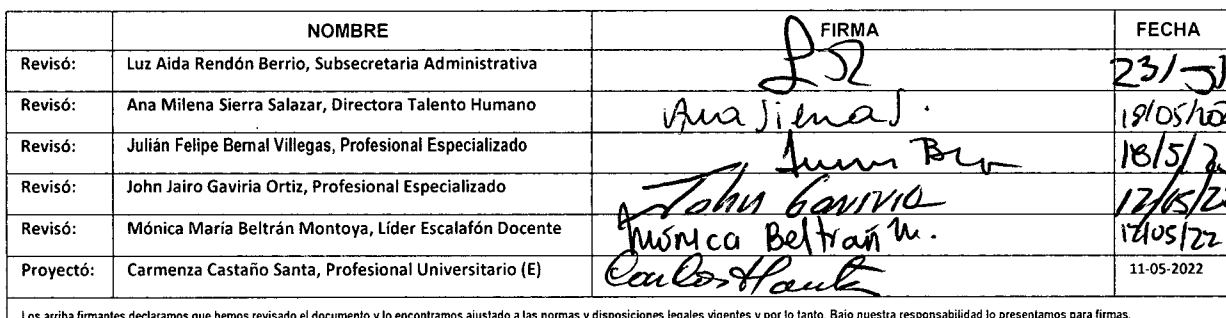 NOMBRE FIRMA FECHA
Revisó: Luz Aida Rendón Berrio, Subsecretaria Administrativa 23/
Revisó: Ana Milena Sierra Salazar, Directora Talento Humano Ana Sierra S.
Revisó: Julián Felipe Bernal Villegas, Profesional Especializado 18/5/
Revisó: John Jairo Gaviria Ortiz, Profesional Especializado John Gaviria 12/05/22
Revisó: Mónica María Beltrán Montoya, Líder Escalafón Docente Mónica Beltrán M. 12/05/22
Proyectó: Carmenza Castaño Santa, Profesional Universitario (E) 11-05-2022
Los arriba firmantes declaramos que hemos revisado el documento y lo encontramos ajustado a las normas y disposiciones legales vigentes y por lo tanto. Bajo nuestra responsabilidad lo presentamos para firmas.